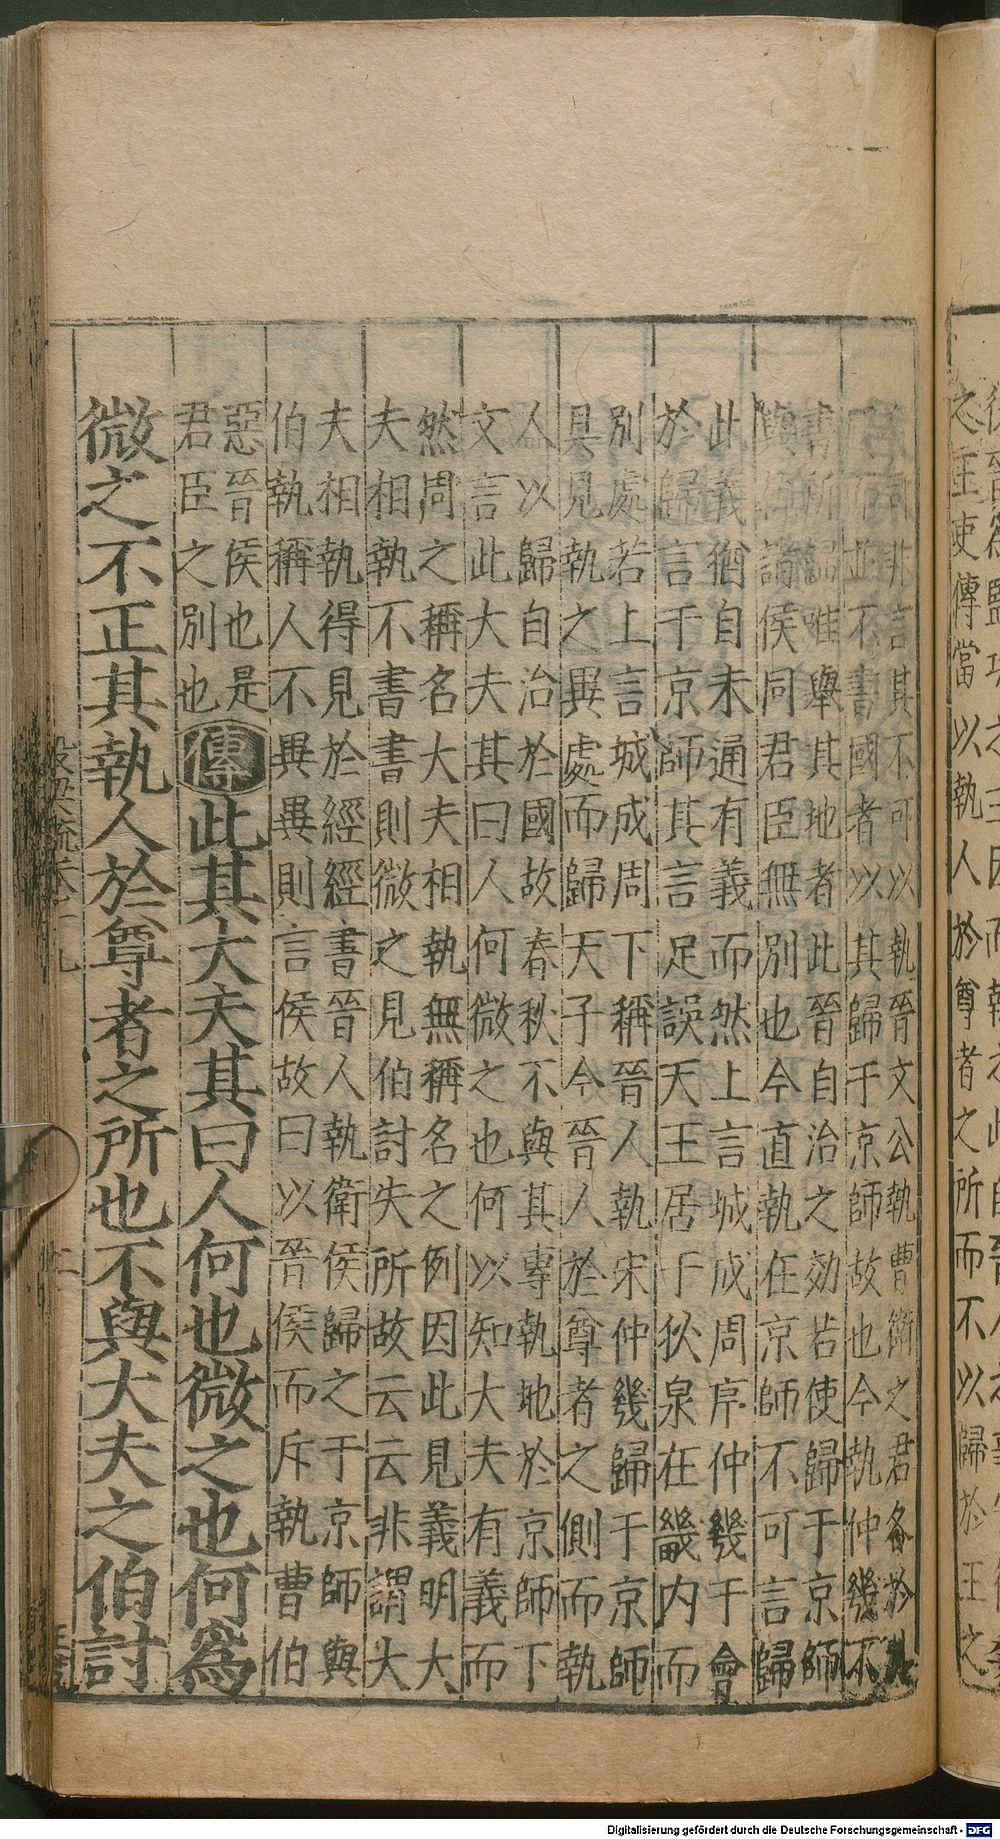 之王使傳當以執人於尊者之所而不以歸於王之
非言其不可以執晉文公執曹衛之君各於
並不書國者以其歸于京師故也今執仲幾不
書所歸唯舉其地者此晉自治之効若使歸于京師
侯同君臣無別也今直執在京師不可言歸
此義猶自未通有義而然上言城成周序仲幾于會
於歸言于京師其言足誤天王居于狄泉在畿內而
別處若上言城成周下稱晉人執宋仲幾歸于京師
具見執之異處而歸天子今晉人於尊者之側而執
人以歸自治於國故春秋不與其專執地於京師下
文言此大夫其曰人何微之也何以知大夫有義而
然周之稱名大夫相執無稱名之例因此見義明大
夫相執不書書則微之見伯討失所故云云非謂大
夫相執得見於經經書晉人執衛侯歸之于京師與
伯執稱人不異異則言侯故曰以晉侯而斥執曹伯
惡晉侯也是
君臣之別也
傳此其大夫其曰人何也微之也何爲
微之不正其執人於尊者之所也不與大夫之伯討
Digitalisierung gefördert durch die Deutsche Forschungsgemeinschaft - DFG